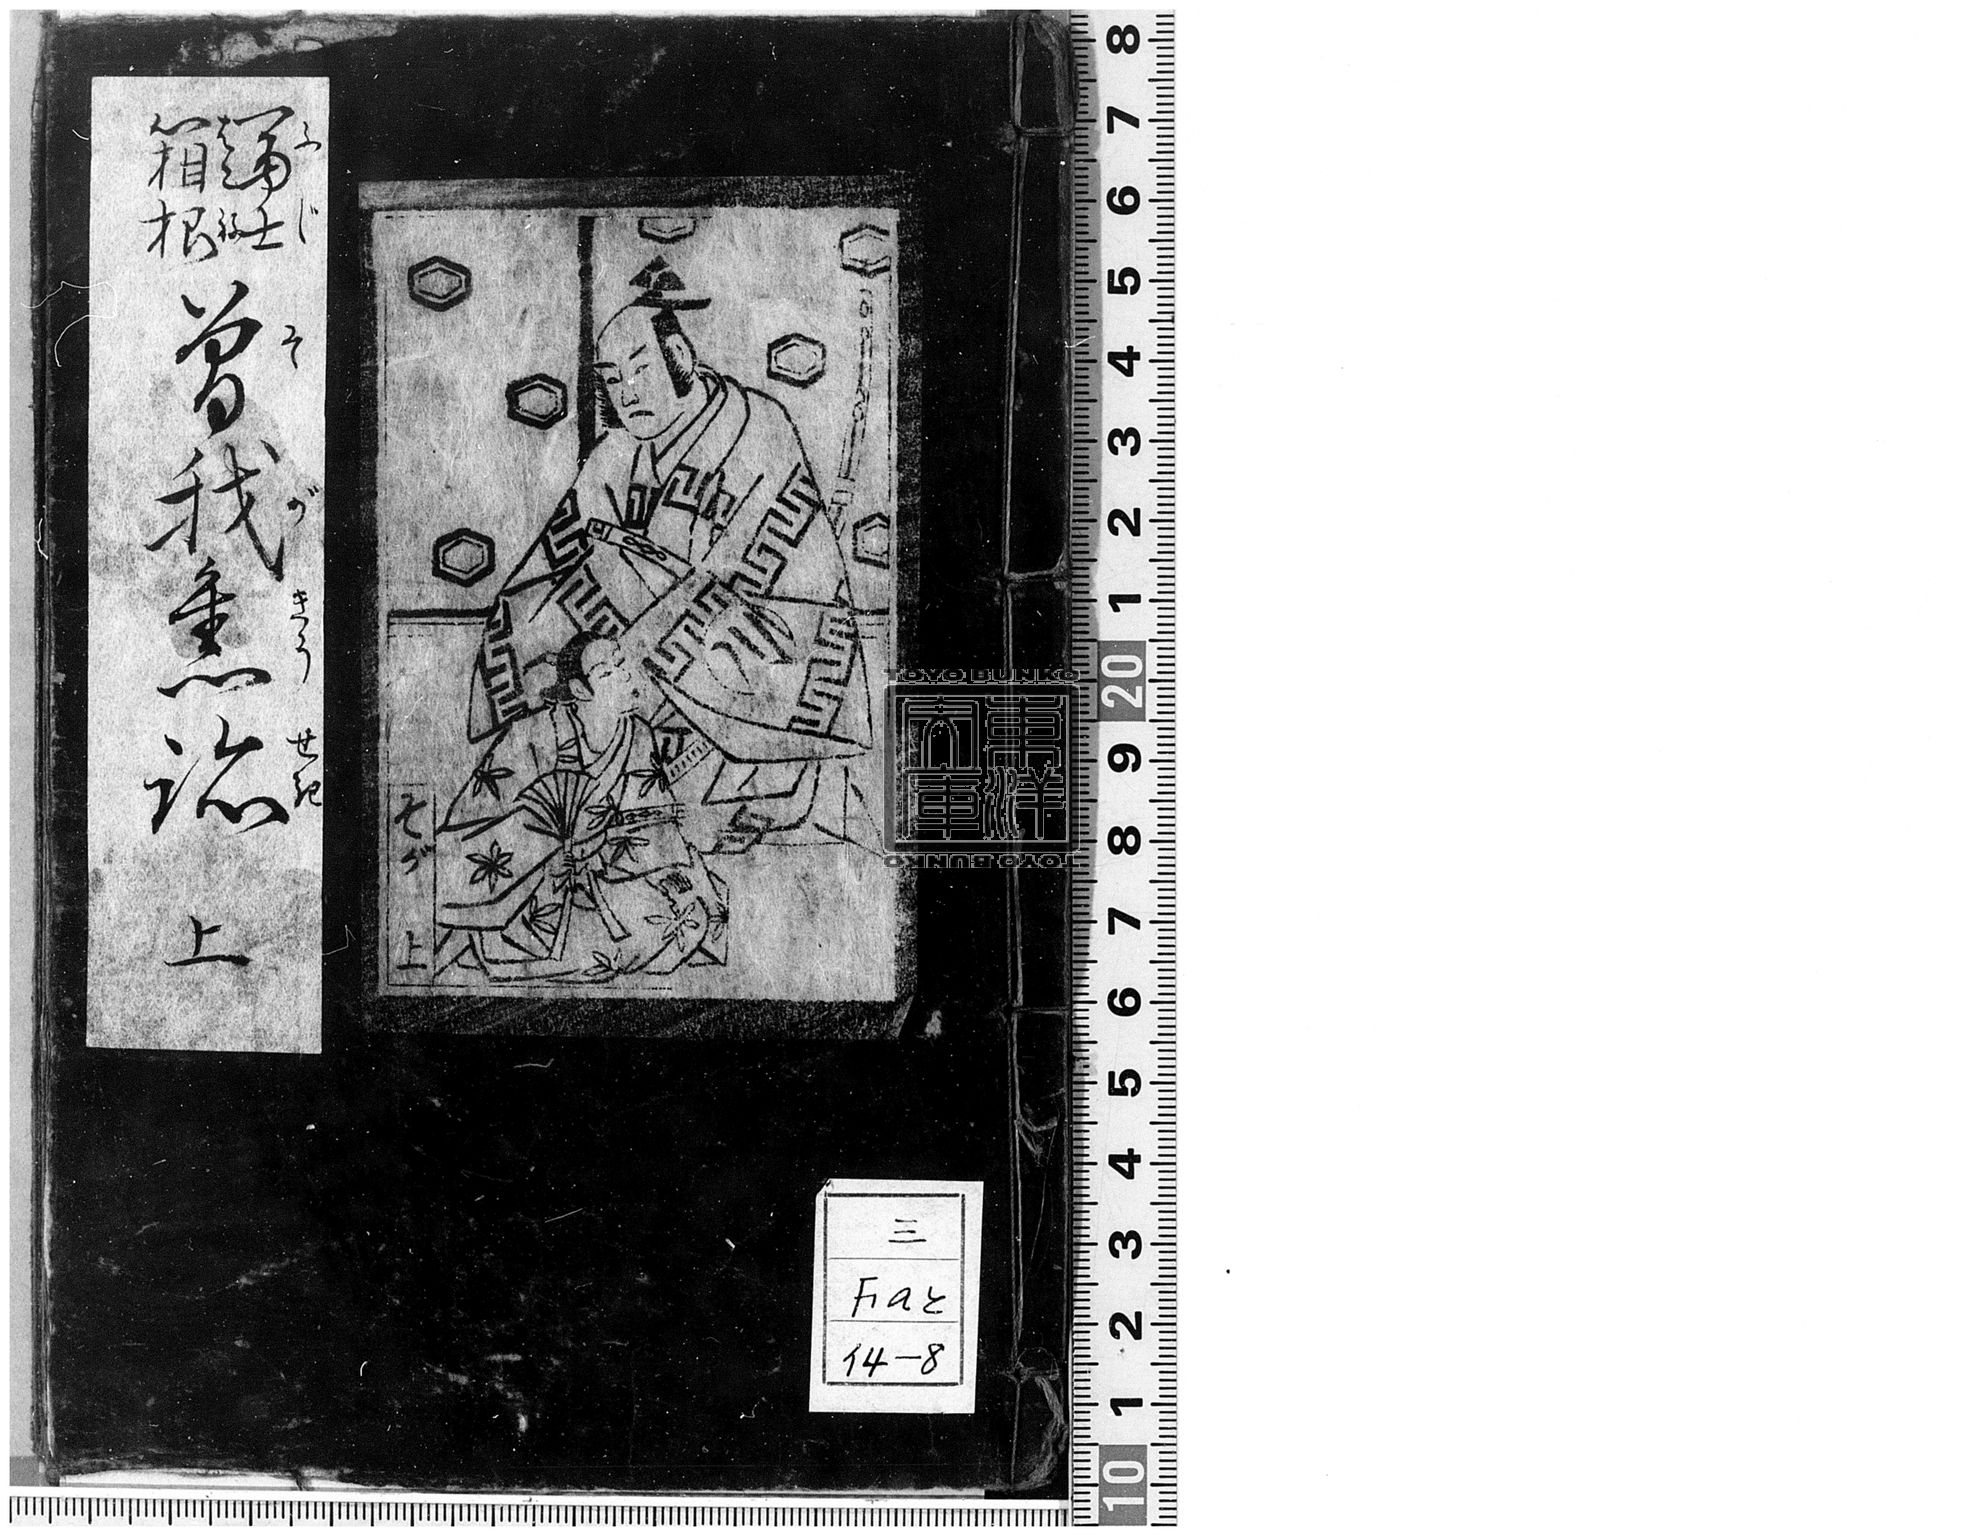 冨士
ふじ
箱根
はこね
曽我𠮷
そがきう
上
そが
上
三
Fiaと
14-8
TOYO BUNKO
東洋
文庫
TOYO BUNKO
8
7
6
5
4
3
2
1
20
9
8
7
6
5
4
3
2
1
10